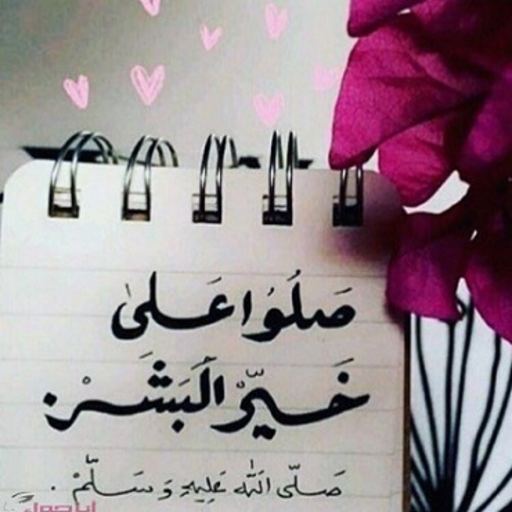 صَلُوا عَلىٰ
خَيّرْ الْبَشَرْ.
صَلّى اللّه عَليهِ وَ سَلّمْ.